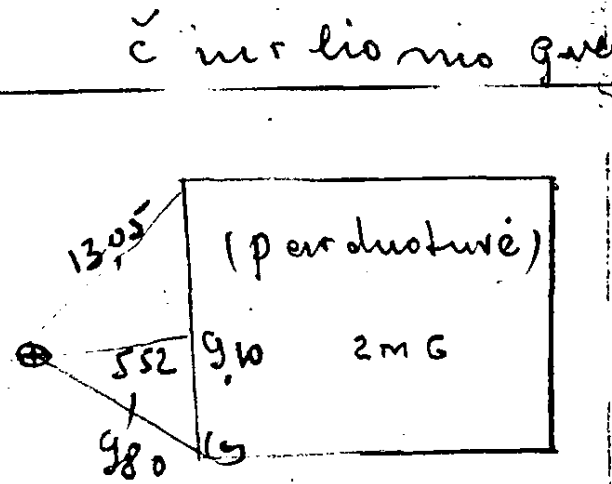 Čiurlionio
13,05
(parduotuvė)
552 9,10 2mG
9,80